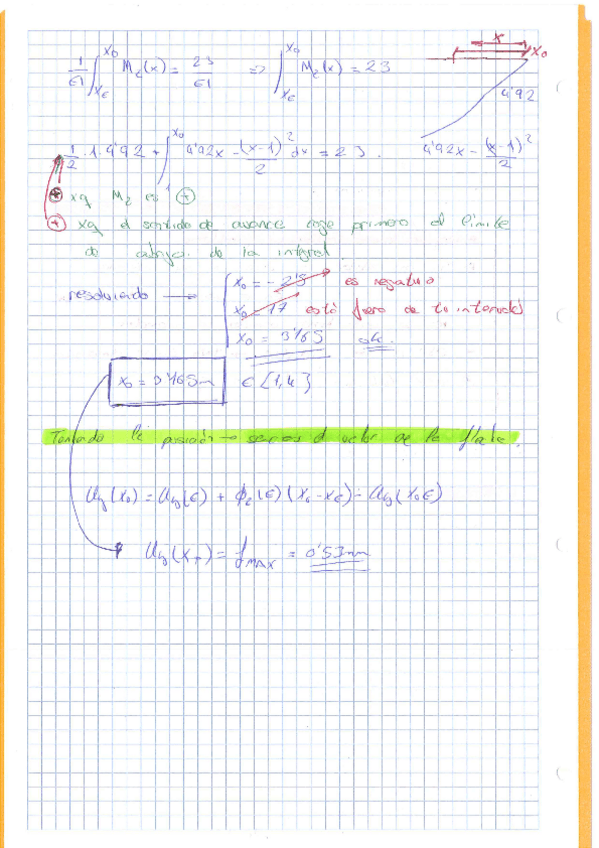 x
x₀
1/EI ∫_{x_E}^{x₀} M_z(x) = 23/EI => ∫_{x_E}^{x₀} M_z(x) = 23
4'92
1/2 · 1 · 4'92 + ∫_1^{x₀} 4'92x - (x-1)²/2 dx = 23. 4'92x - (x-1)²/2
⊕ xq M_z es ⊕
⊕ xq el sentido de avance coge primero el límite
de abajo de la integral.
resolviendo → x₀ = -2'5 es negativo
x₀ = 17 está fuera de intervalo
x₀ = 3'65 ok.
x₀ = 3'165m ∈ [1,4]
Teniendo la posición → sacamos el valor de la flecha.
U_y(x₀) = U_y(E) + ϕ_z(E)(x₀-x_E) - U_y(x₀E)
U_y(x_T) = f_MAX = 0'53mm